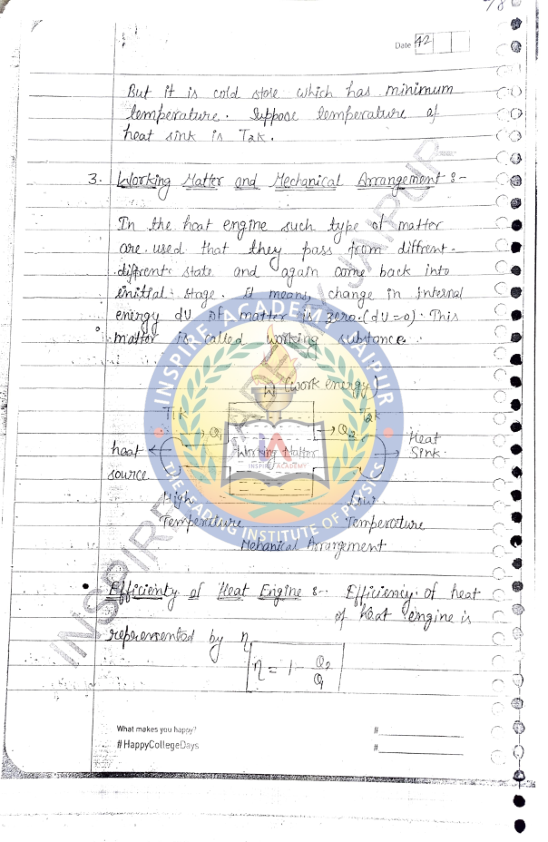 78
Date 42
But it is cold store which has minimum
temperature. Suppose temperature of
heat sink is T2k.
3. Working Matter and Mechanical Arrangement :-
In the heat engine such type of matter
are used that they pass from diffrent-
diffrent state and again come back into
initial stage. It means, change in internal
energy dU of matter is zero. (dU=0). This
matter is called working substance.
W (work energy)
T1k T2k
→Q1 →Q2 Heat
heat Working Matter Sink
source
High Low
Temperature Temperature
Mehanical Arrangement
• Efficienty of Heat Engine :- Efficiency of heat
of heat engine is
represented by η
η = 1 - Q2/Q1
What makes you happy? #
#HappyCollegeDays #
INSPIRE ACADEMY JAIPUR
INSPIRE ACADEMY JAIPUR
IA
INSPIRE ACADEMY
THE LEADING INSTITUTE OF PHYSICS